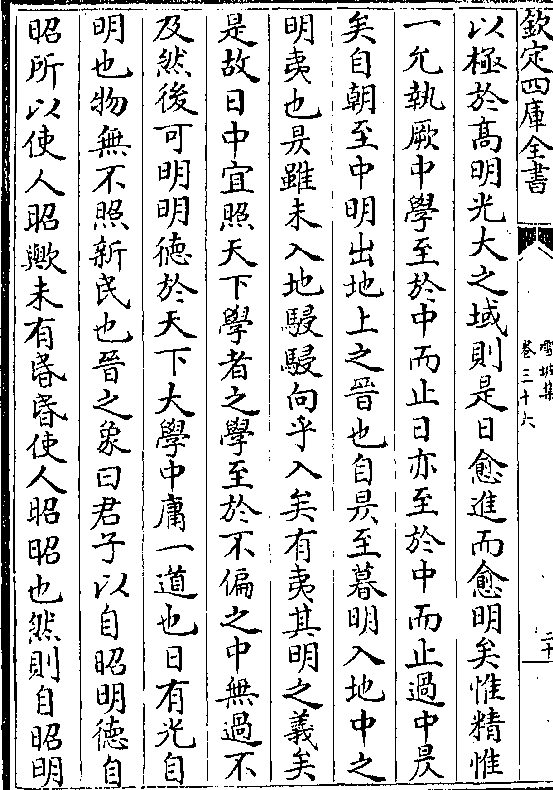 欽定四庫全書
雪坡集
卷三十六
二十
以極於髙明光大之域則是日愈進而愈明矣惟精惟
一允執厥中學至於中而止日亦至於中而止過中昃
矣自朝至中明出地上之晉也自昃至暮明入地中之
明夷也昃雖未入地駸駸向乎入矣有夷其明之義矣
是故日中宜照天下學者之學至於不偏之中無過不
及然後可明明德於天下大學中庸一道也日有光自
明也物無不照新民也晉之象曰君子以自昭明德自
昭所以使人昭歟未有昬昬使人昭昭也然則自昭明